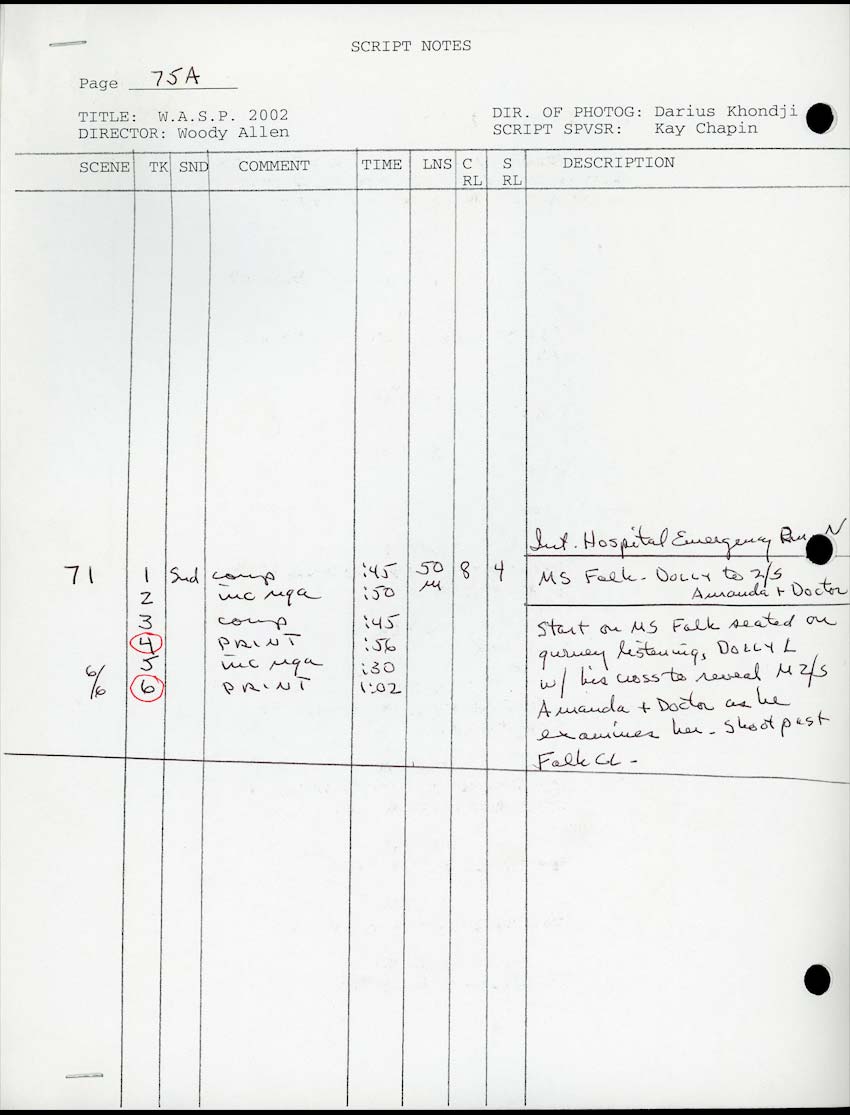 SCRIPT NOTES
Page 75A
TITLE: W.A.S.P. 2002 DIR. OF PHOTOG: Darius Khondji
DIRECTOR: Woody Allen SCRIPT SPVSR: Kay Chapin
SCENE TK SND COMMENT TIME LNS C RL S RL DESCRIPTION
Int. Hospital Emergency Rm. N
71 1 Snd comp :45 50 8 4 MS Falk - DOLLY to 2/S
2 inc nga :50 M Amanda + Doctor
3 comp :45 Start on MS Falk seated on
4 PRINT :56 gurney listening, DOLLY L
5 inc nga :30 w/ his cross to reveal M 2/S
6/6 6 PRINT 1:02 Amanda + Doctor as he
examines her - Shoot past
Falk CL -